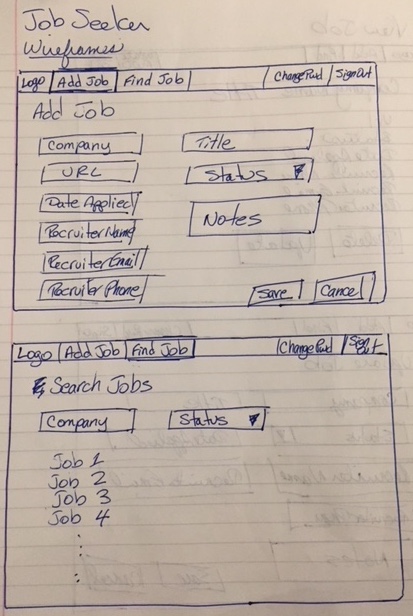 Job Seeker
Wireframes
Logo Add Job Find Job Change Pwd Sign Out
Add Job
Company Title
URL Status
Date Applied Notes
Recruiter Name
Recruiter Email
Recruiter Phone Save Cancel
Logo Add Job Find Job Change Pwd Sign Out
Search Jobs
Company Status
Job 1
Job 2
Job 3
Job 4